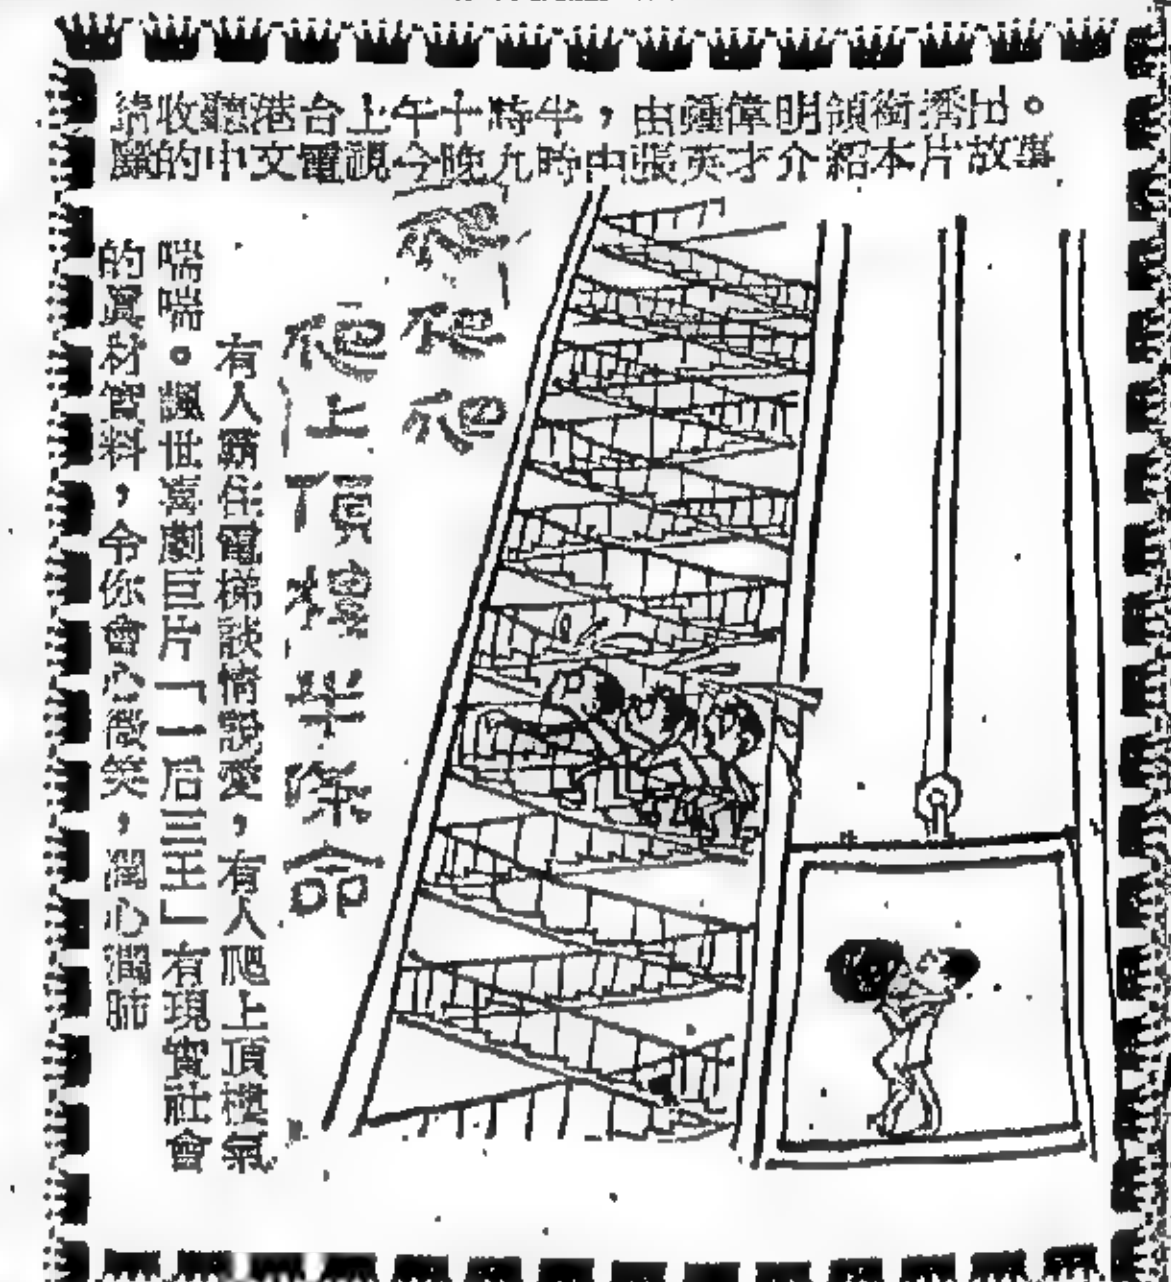 請收聽港台上午十時半，由鍾偉明領銜播出。
麗的中文電視今晚九時由張英才介紹本片故事
爬爬爬
爬上頂樓半條命
有人霸住電梯談情說愛，有人爬上頂樓氣
喘喘。諷世喜劇巨片「一后三王」有現實社會
的真材實料，令你會心微笑，開心開肺